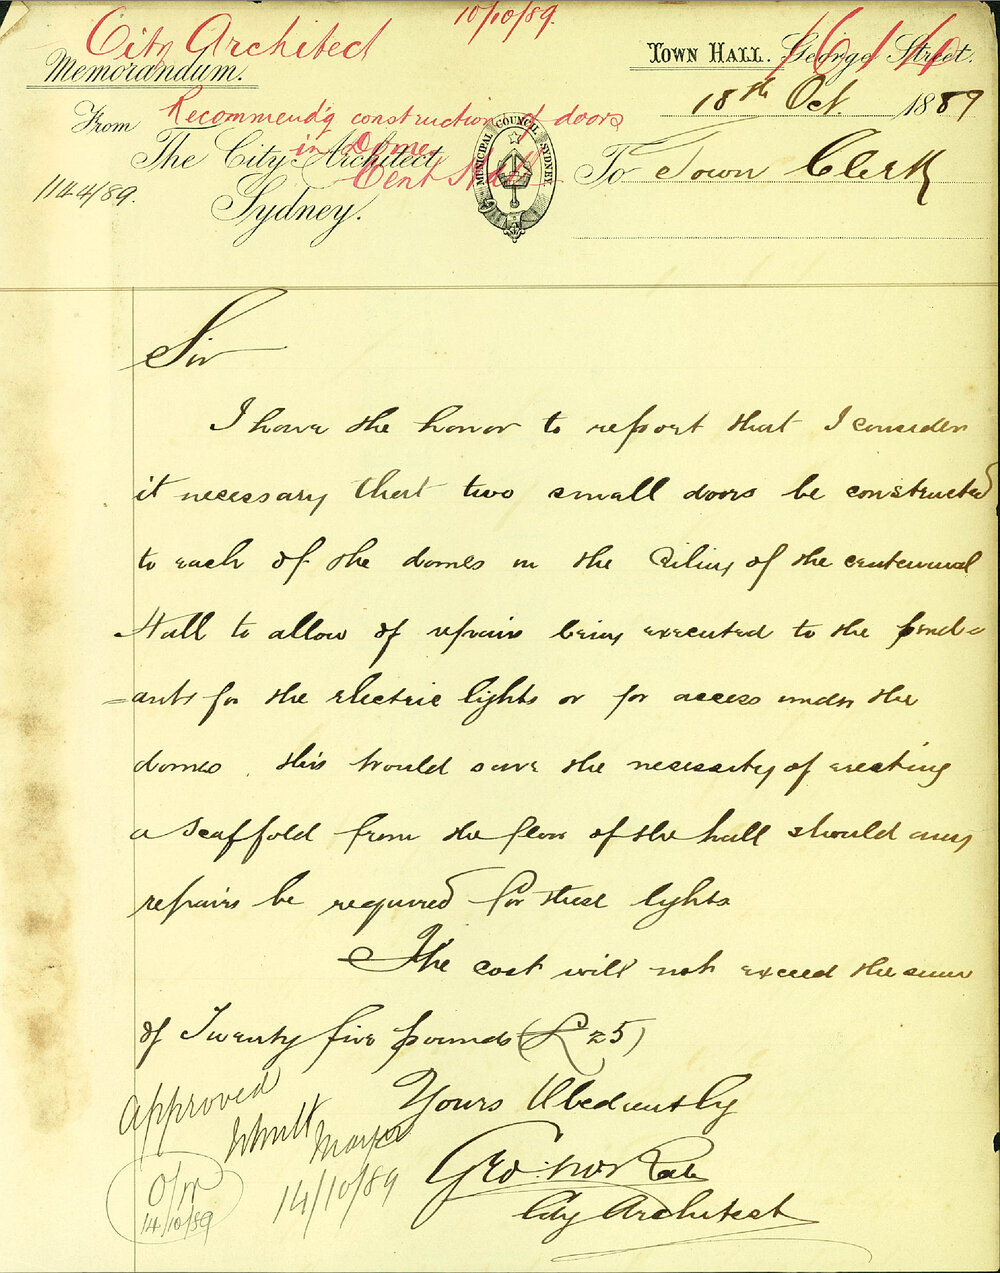 10/10/89.
City Architect
1616
Memorandum.
TOWN HALL. George Street.
18th Oct. 1889
Recommend'g construction of doors
in Domes
Cent Hall
From
The City Architect,
Sydney.
MUNICIPAL COUNCIL SYDNEY
To Town Clerk
1144/89.
Sir
I have the honor to report that I consider
it necessary that two small doors be constructed
to each of the domes in the Ceiling of the centennial
Hall to allow of repairs being executed to the pend-
=ants for the electric lights or for access under the
domes. this would save the necessity of erecting
a scaffold from the floor of the hall should any
repairs be required for these lights
The cost will not exceed the sum
of Twenty five pounds (£25)
Yours Obediently
Approved
Mayor
14/10/89
14/10/89
Geo:
City Architect